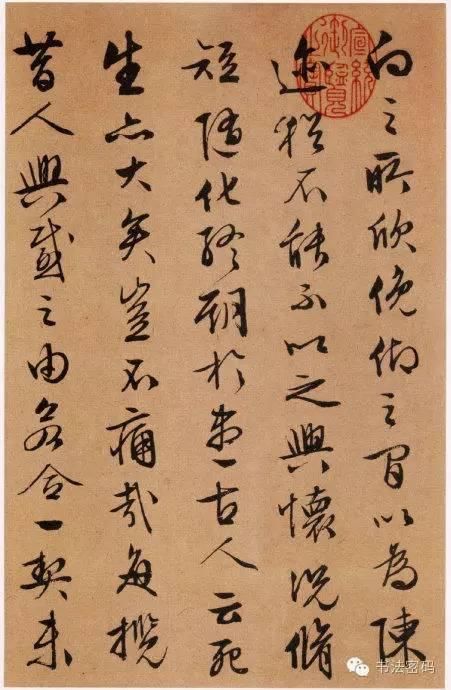 向之所欣俛仰之間以為陳
迹猶不能不以之興懷況脩
短隨化終期於盡古人云死
生亦大矣豈不痛哉每攬
昔人興感之由若合一契未
宣統御覽之寶
书法密码